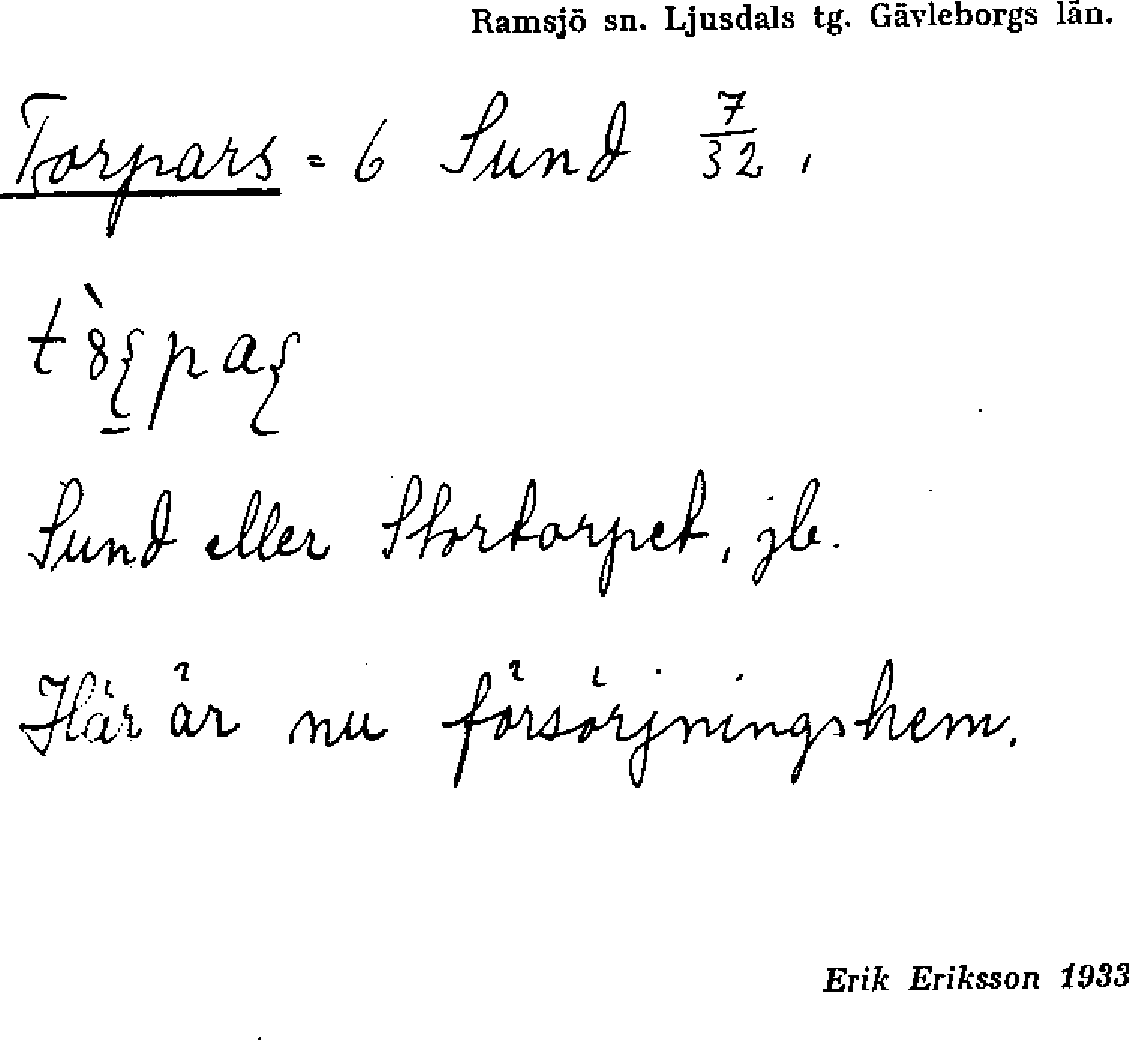 Ramsjö sn. Ljusdals tg. Gävleborgs län.
Torpars = 6 Sund 7/32,
Sund eller Stortorpet, jb.
Här är nu försörjningshem.
Erik Eriksson 1933